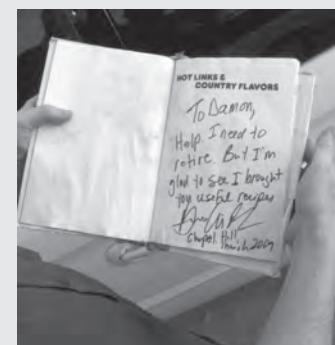 HOT LINKS &
COUNTRY FLAVORS
To Damon,
Help. I need to
retire. But I'm
glad to see I brought
you useful recipes
Chapel Hill
2009